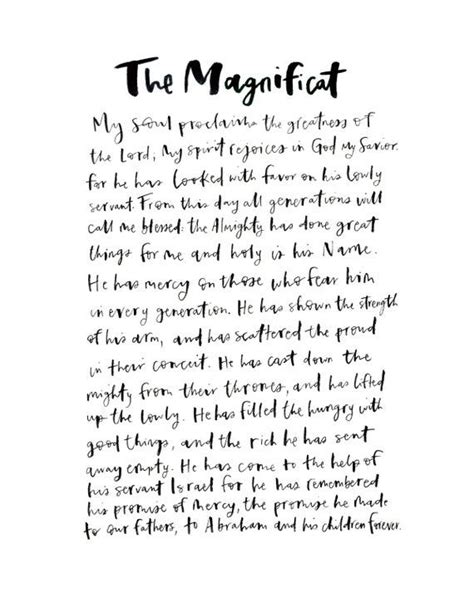 The Magnificat
My soul proclaims the greatness of
the Lord, my spirit rejoices in God my Savior.
for he has looked with favor on his lowly
servant. From this day all generations will
call me blessed: the Almighty has done great
things for me and holy is his Name.
He has mercy on those who fear him
in every generation. He has shown the strength
of his arm, and has scattered the proud
in their conceit. He has cast down the
mighty from their thrones, and has lifted
up the lowly. He has filled the hungry with
good things, and the rich he has sent
away empty. He has come to the help of
his servant Israel for he has remembered
his promise of mercy, the promise he made
to our fathers, to Abraham and his children forever.